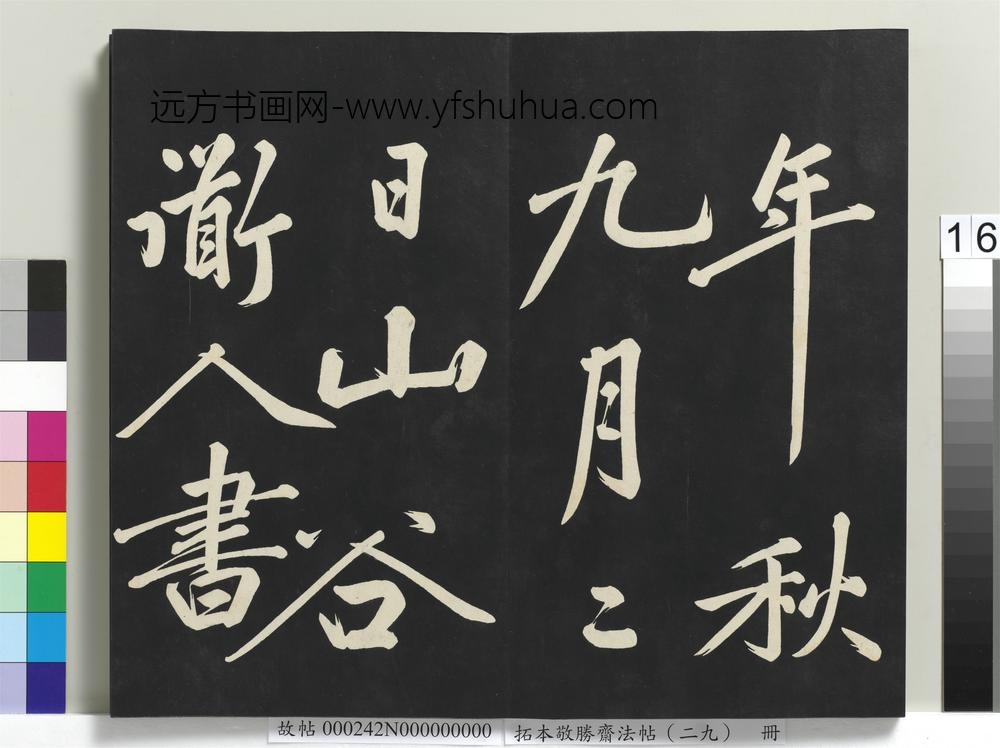 远方书画网-www.yfshuhua.com
年秋
九月二
日山谷
衜人書
16
故帖 000242N000000000
拓本敬勝齋法帖(二九) 冊